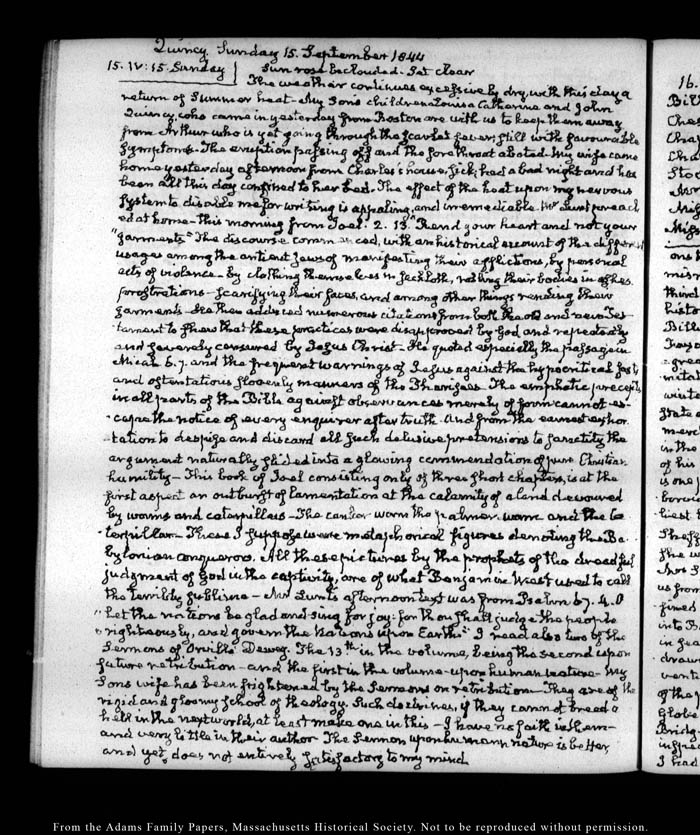 Quincy. Sunday 15. September 1844
15. IV: 15. Sunday Sun rose beclouded. Set clear
The weather continues excessively dry, with this day a
return of Summer heat. My Son's children Louisa Catherine and John
Quincy, who came in yesterday from Boston are with us to keep them away
from Arthur who is yet going through the scarlet fever, still with favourable
symptoms. The eruption passing off and the sore throat abated. My wife came
home yesterday afternoon from Charles's house, sick, had a bad night and has
been all this day confined to her bed. The effect of the heat upon my nervous
system to disable me for writing is appaling, and irremediable. Mr Lunt preach
ed at home—this morning from Joel. 2. 13. "Rend your heart and not your
"garments" The discourse commenced, with an historical account of the different
usages among the antient Jews of manifesting their afflictions, by personal
acts of violence—by clothing themselves in sackcloth, rolling their bodies in ashes
prostrations—scarifying their faces, and among other things rending their
garments. He then adduced numerous citations from both the old and new Tes
tament to shew that these practices were disapproved by God and repeatedly
and severely censured by Jesus Christ. He quoted especially the passage in
Micah 6. 7. and the frequent warnings of Jesus against the hypocritical fasts
and ostentatious slovenly manners of the Pharisees. The emphatic precepts
in all parts of the Bible against observances merely of form cannot es-
-cape the notice of every enquirer after truth. And from the earnest exhor
-tation to despise and discard all such delusive pretensions to sanctity the
argument naturally glided into a glowing commendation of pure Christian
humility—This book of Joel consisting only of three short chapters, is at the
first aspect an outburst of lamentation at the calamity of a land devoured
by worms and caterpillars—The canker worm the palmer worm and the ca
terpillar—These I suppose were metaphorical figures denoting the Ba-
bylonian conquerors. All these pictures by the prophets of the dreadful
judgment of God in the captivity, are of what Benjamin West used to call
the terribly sublime—Mr Lunt's afternoon text was from Psalm 67. 4. O
"let the nations be glad and sing for joy: for thou shalt judge the people
"righteously, and govern the Nations upon Earth." I read also two of the
Sermons of Orville Dewey. The 13th in the volume, being the second upon
future retribution—and the first in the volume—upon human nature—My
Son's wife has been frightened by the Sermons on retribution—They are of the
rigid and gloomy school of theology. Such doctrines, if they cannot breed a
hell in the next world, at least make one in this—I have no faith in them
and very little in their author. The Sermon upon human nature is better
and yet, does not entirely satisfactory to my mind.
16.
From the Adams Family Papers, Massachusetts Historical Society. Not to be reproduced without permission.